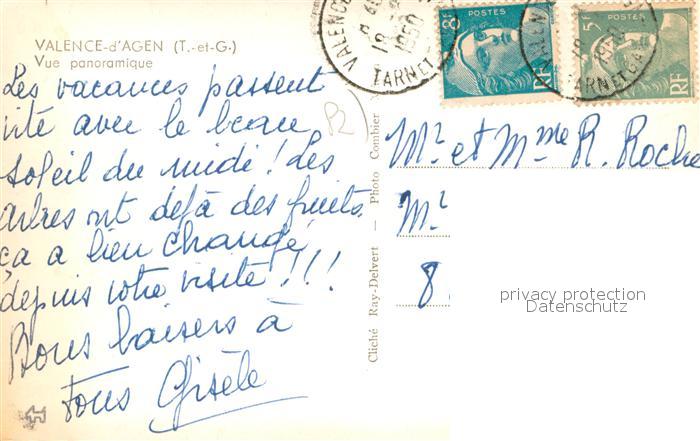 VALENCE-d'AGEN (T.-et-G.)
Vue panoramique
Les vacances passent
vite avec le beau
soleil du midi ! Les
arbres ont déjà des fruits.
ça a bien changé
depuis votre visite !!!
Bons baisers à
Tous Gisèle
Cliché Ray-Delvert — Photo Combier
VALENCE
1950
TARNET
8F POSTES
RF
1950
5F POSTES
RF
Mr et Mme R. Roche
Mr
8
privacy protection
Datenschutz